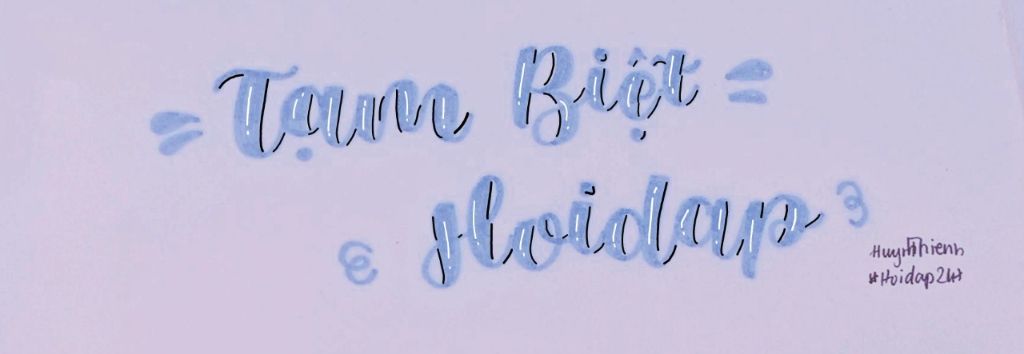 Tạm Biệt
Hoidap
HuynhThienn
#Hoidap247